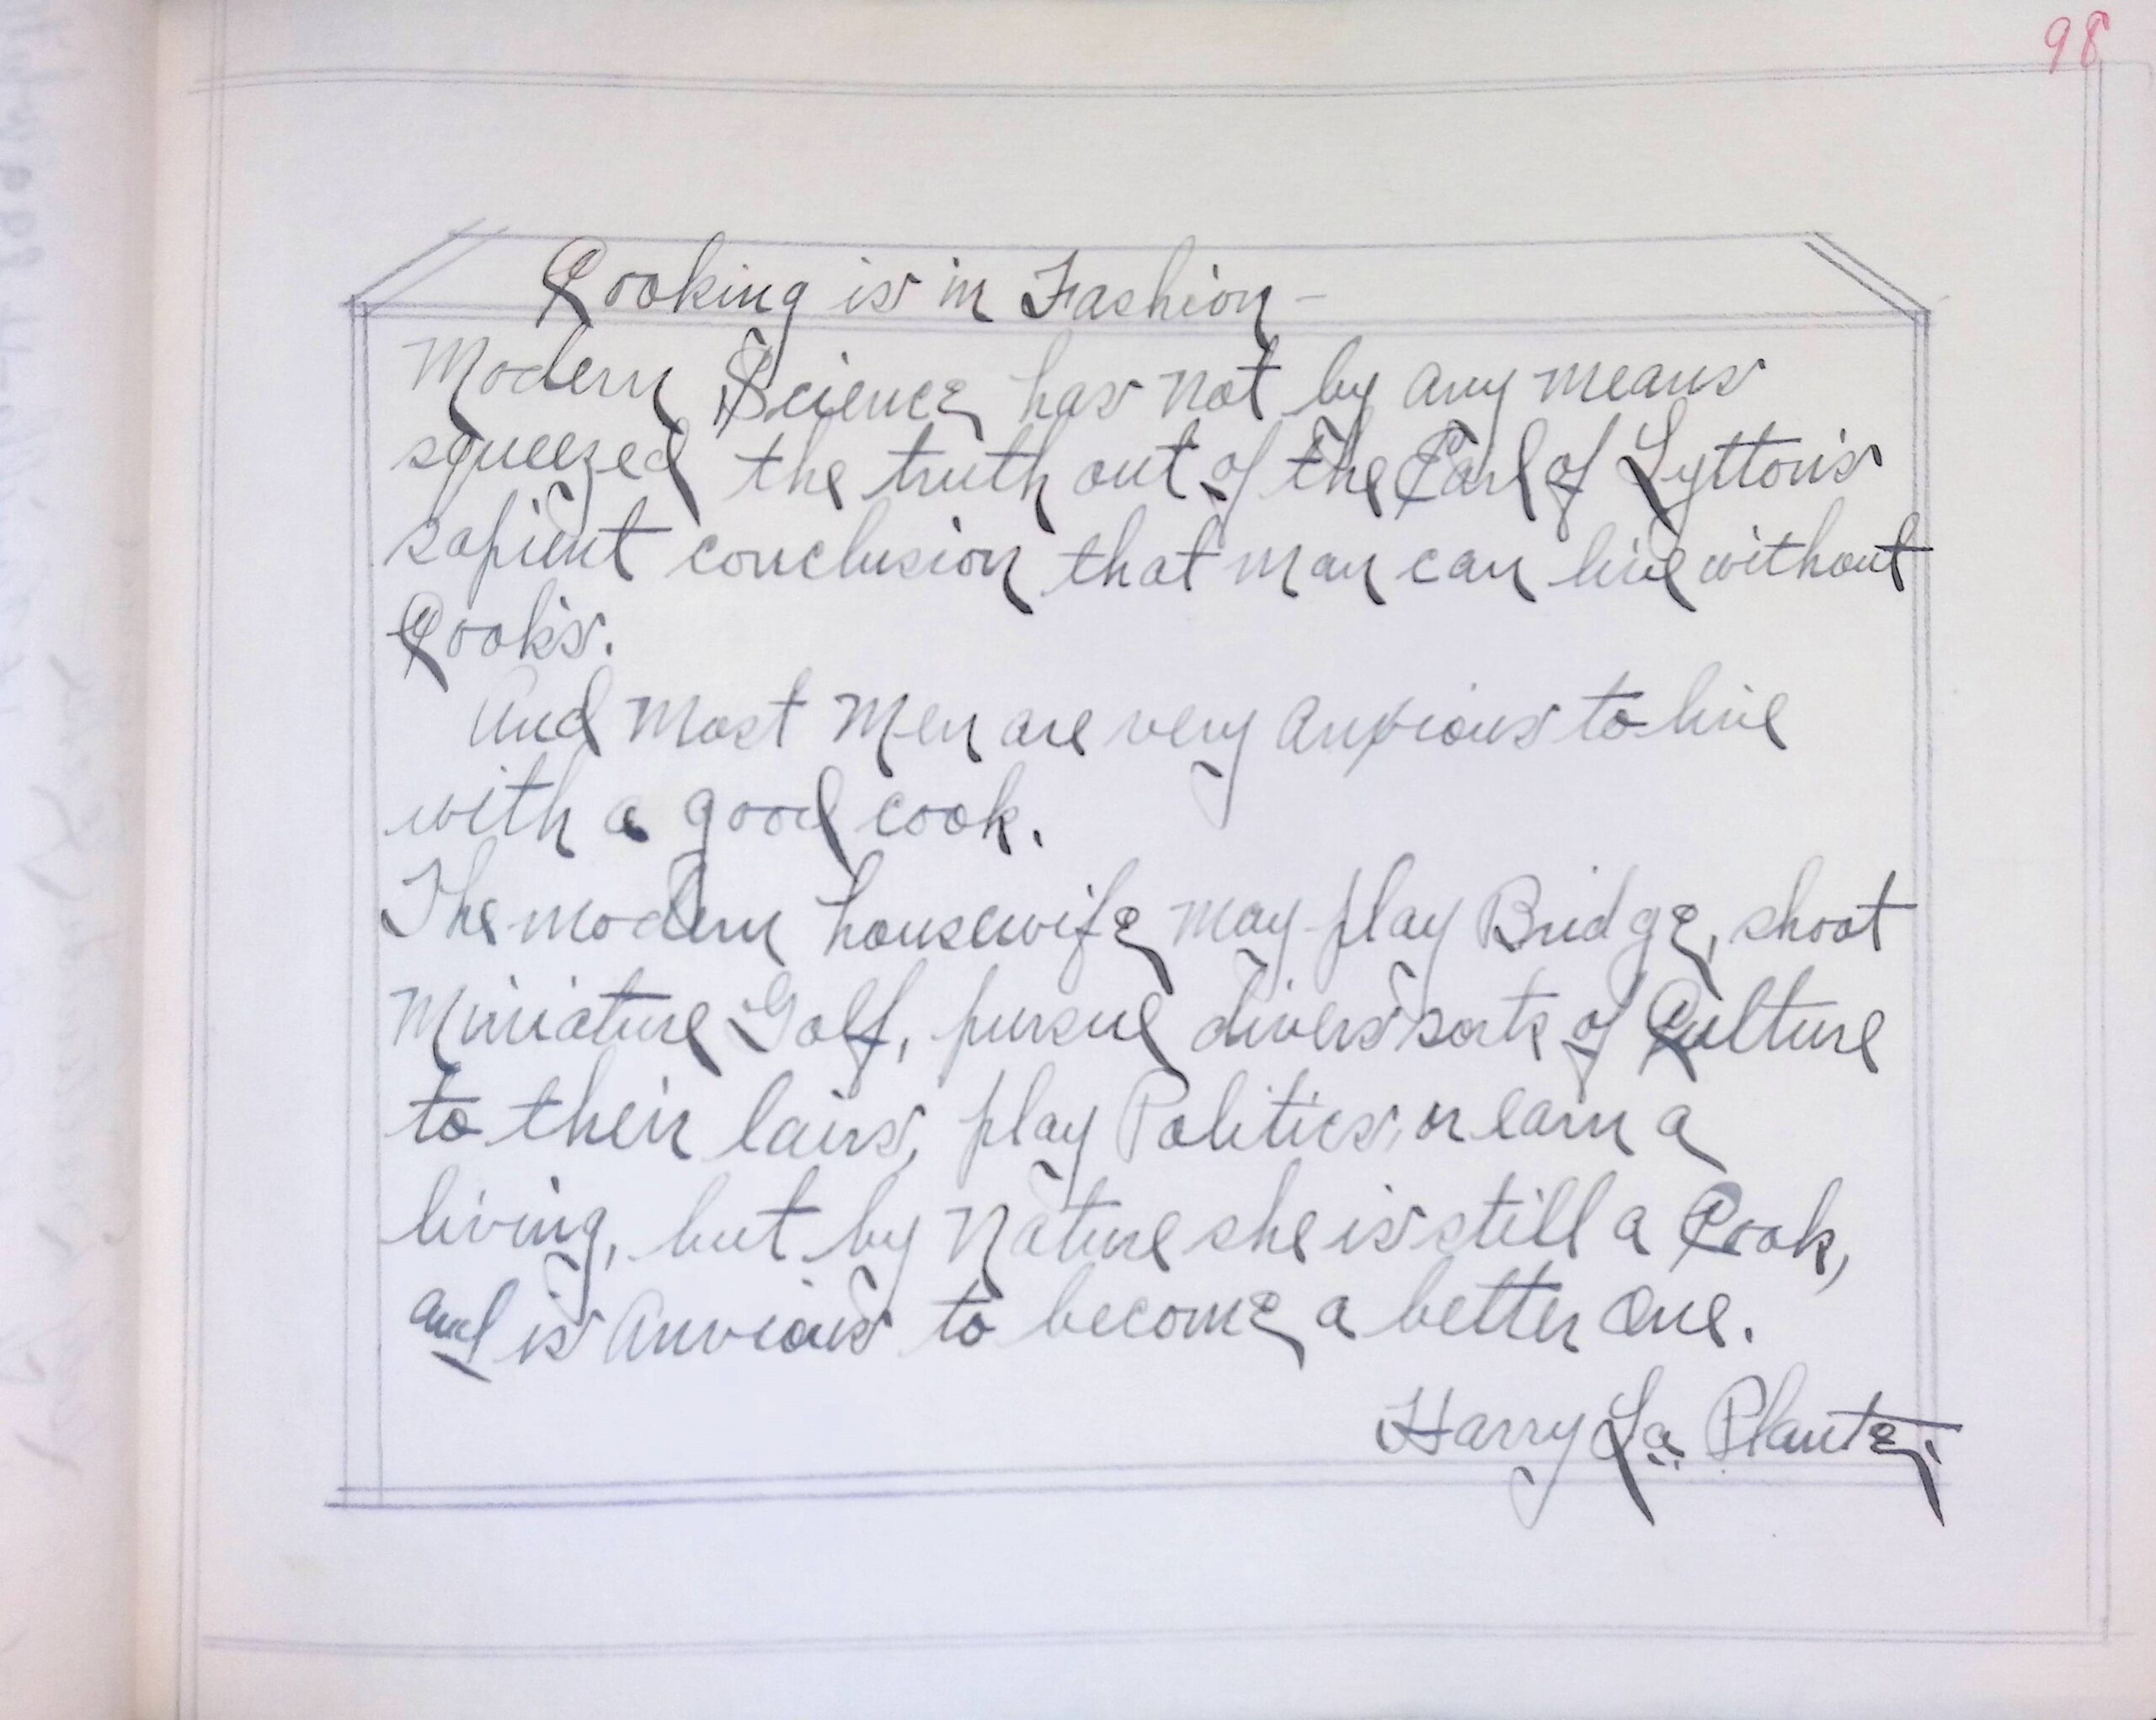 98
Cooking is in Fashion -
Modern Science has not by any means
squeezed the truth out of the Earl of Lytton's
sapient conclusion that man can live without
Cook's.
And Most Men are very anxious to live
with a good cook.
The modern housewife may play Bridge, shoot
Miniature Golf, pursue divers sorts of Culture
to their lairs, play Politics, or earn a
living, but by Nature she is still a Cook,
and is anxious to become a better one.
Harry La Plante.